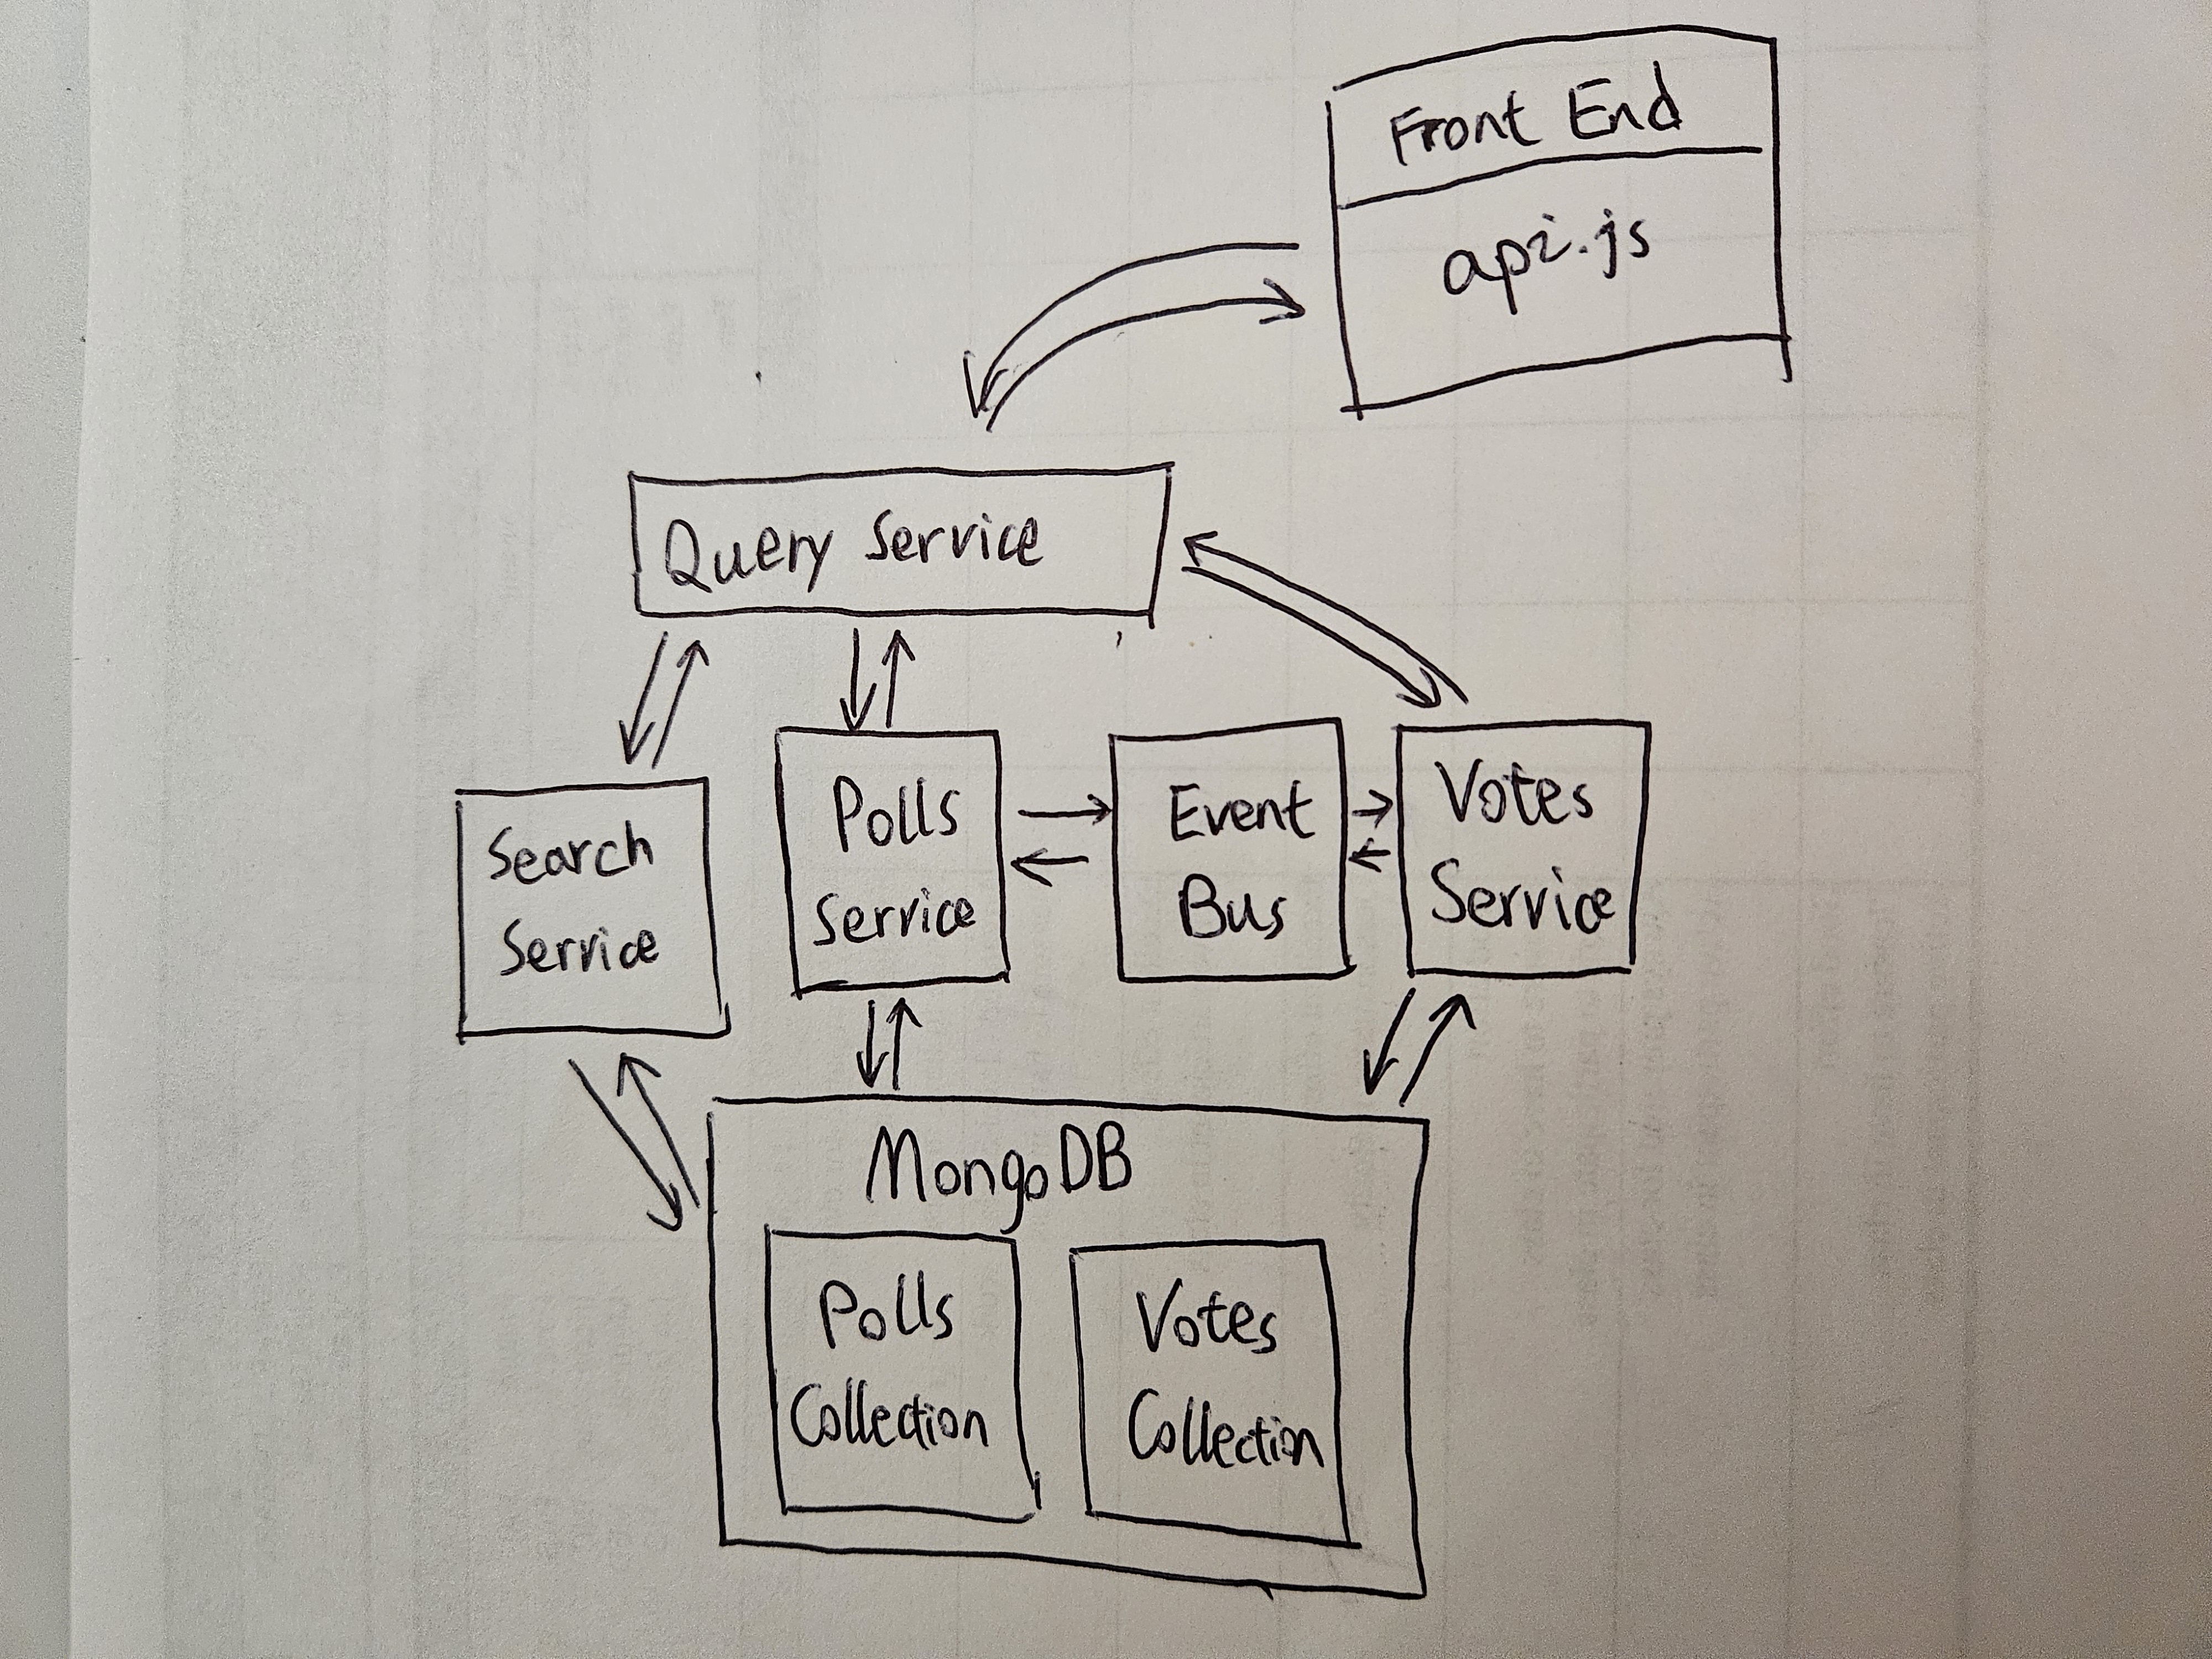 Front End
api.js
Query Service
Search
Service
Polls
Service
Event
Bus
Votes
Service
MongoDB
Polls
Collection
Votes
Collection